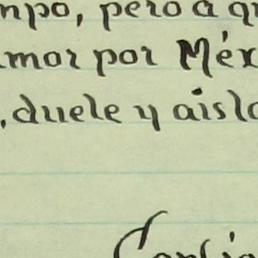 mpo, pero a qu
mor por Méx
, duele y aisla